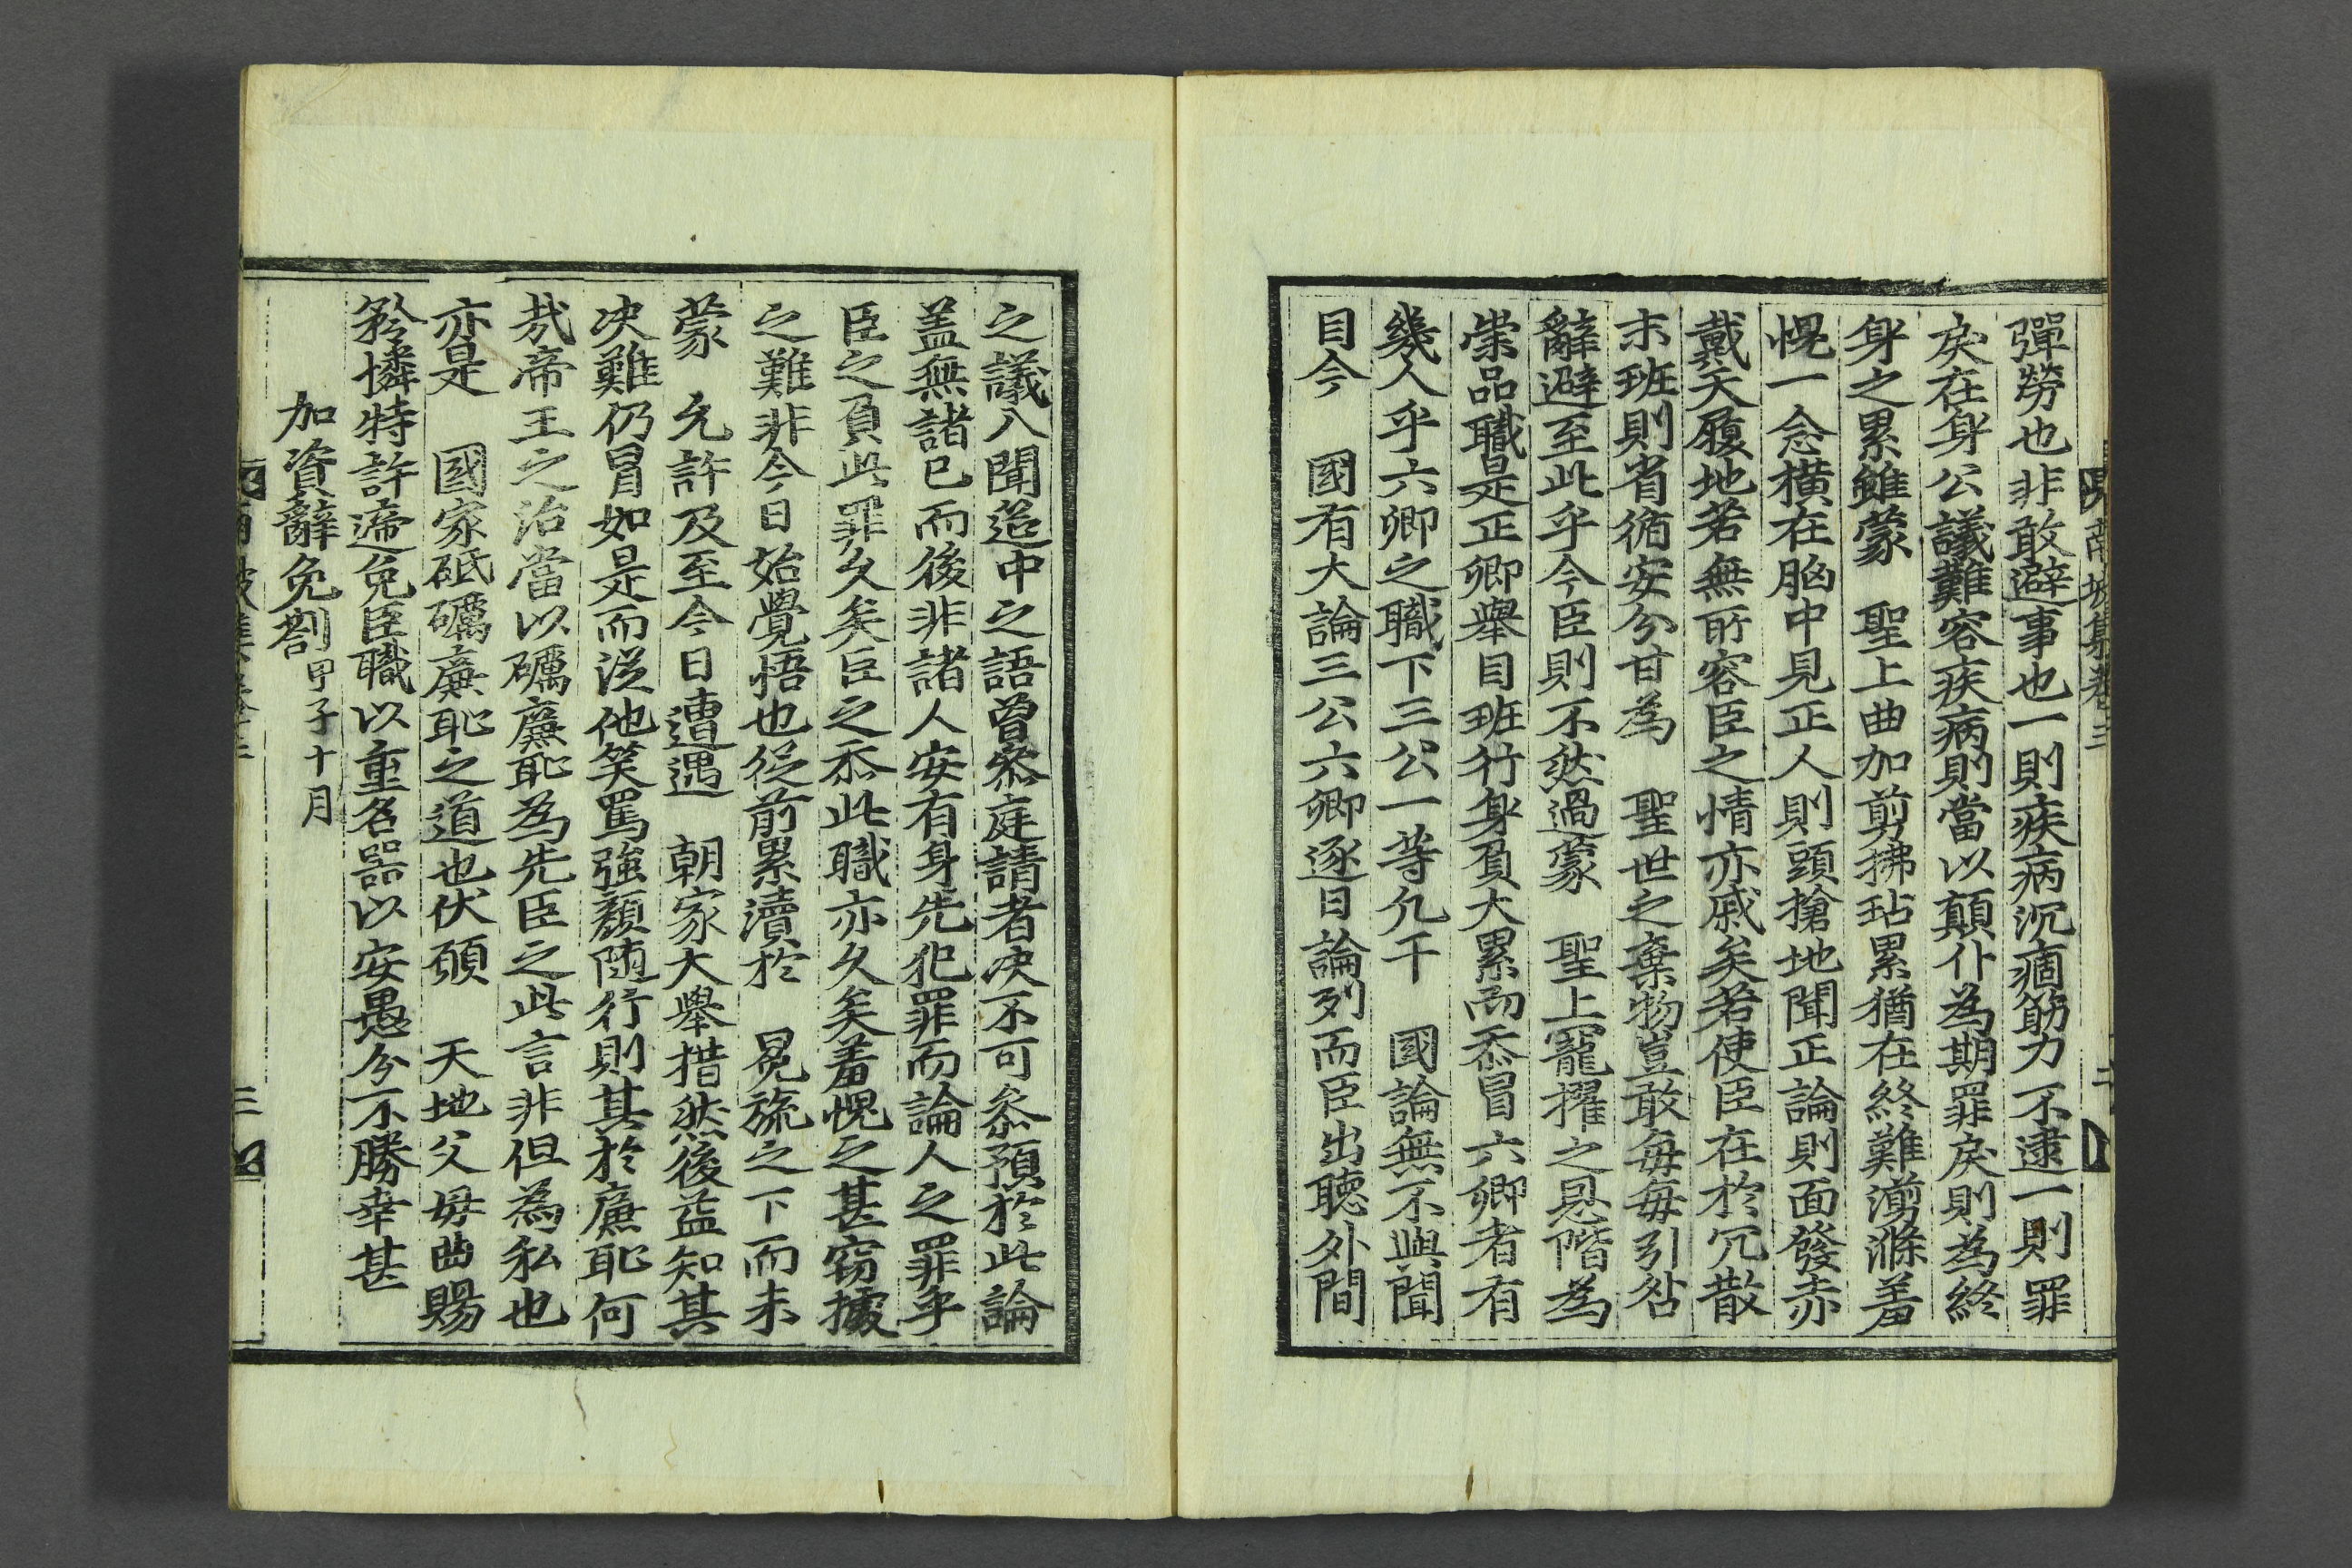 南坡集卷三
二
彈勞也非敢避事也一則疾病沉痼筋力不逮一則罪
戾在身公議難容疾病則當以顛仆為期罪戾則為終
身之累雖蒙 聖上曲加剪拂玷累猶在終難湔滌羞
愧一念橫在胸中見正人則頭搶地聞正論則面發赤
戴天履地若無所容臣之情亦戚矣若使臣在於冗散
末班則省循安分甘為 聖世之棄物豈敢每每引咎
辭避至此乎今臣則不然過蒙 聖上寵擢之恩階為
崇品職是正卿舉目班行身負大累而忝冒六卿者有
幾人乎六卿之職下三公一等凢干 國論無不與聞
目今 國有大論三公六卿逐日論列而臣出聴外間
之議入聞筵中之語曾叅庭請者決不可叅預於此論
盖無諸已而後非諸人安有身先犯罪而論人之罪乎
臣之負此罪久矣臣之忝此職亦久矣羞愧之甚窃據
之難非今日始覺悟也從前累瀆於 冕旒之下而未
蒙 允許及至今日遭遇 朝家大舉措然後益知其
决難仍冒如是而從他笑罵強顔随行則其於廉恥何
㢤帝王之治當以礪廉恥為先臣之此言非但為私也
亦是 國家砥礪廉恥之道也伏願 天地父母曲賜
矜憐特許遞免臣職以重名器以安愚分不勝幸甚
加資辭免劄甲子十月
三